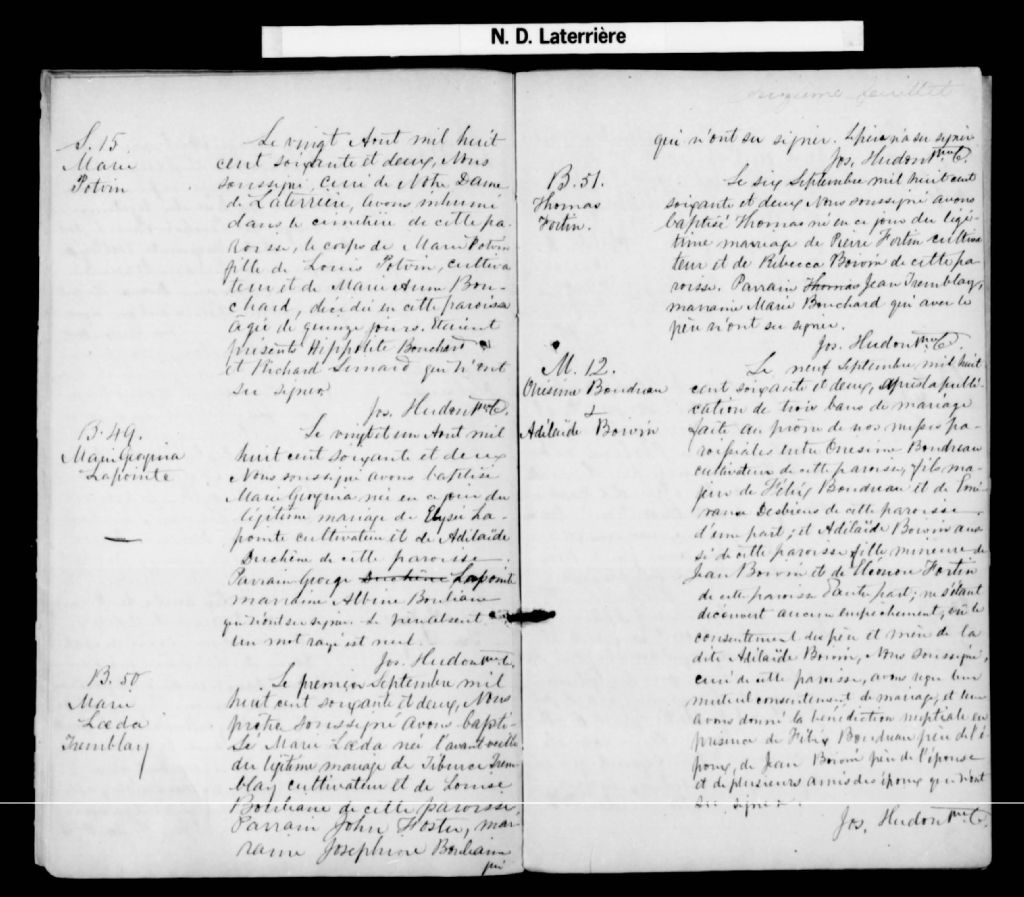 N. D. Laterrière
S. 15
Marie
Potvin
Le vingt Aout mil huit
cent soixante et deux, Nous
soussigné, curé de Notre Dame
de Laterrière, avons inhumé
dans le cimetière de cette pa-
roisse, le corps de Marie Potvin
fille de Louis Potvin, cultiva
teur et de Marie Anne Bou-
chard, décédée en cette paroisse
âgée de quinze jours. Etaient
présents Hippolite Bouchard
et Richard Simard qui n'ont
su signer
Jos. Hudon Ptre C.
B. 49.
Marie Georgina
Lapointe
Le vingt et un Aout mil
huit cent soixante et deux
Nous soussigné avons baptisé
Marie Georgina née en ce jour du
légitime mariage de Elysée La-
pointe cultivateur et de Adilaïde
Duchêne de cette paroisse
Parrain George Duchêne Lapointe
marraine Albine Bouliane
qui n'ont su signer. Le père absent.
un mot rayé est nul.
Jos. Hudon Ptre C.
B. 50
Marie
Lœda
Tremblay
Le premier Septembre mil
huit cent soixante et deux, Nous
prêtre soussigné avons bapti-
sé Marie Lœda née l'avant veille
du légitime mariage de Tiburce Trem
blay cultivateur et de Louise
Bouliane de cette paroisse
Parrain John Foster, mar-
raine Josephine Bouliane
qui
sixième feuillet
qui n'ont su signer. Le père n'a su signer
Jos. Hudon Ptre C.
B. 51.
Thomas
Fortin.
Le six Septembre mil huit cent
soixante et deux Nous soussigné avons
baptisé Thomas né en ce jour du légi-
time mariage de Pierre Fortin cultiva
teur et de Rebecca Boivin de cette pa-
roisse. Parrain Thomas Jean Tremblay,
marraine Marie Bouchard qui avec le
père n'ont su signer.
Jos. Hudon Ptre C.
M. 12.
Onesime Boudreau
+
Adilaïde Boivin
Le neuf Septembre mil huit
cent soixante et deux, après la publi-
cation de trois bans de mariage
faite au prône de nos messes pa-
roissiales entre Onesime Boudreau
cultivateur de cette paroisse, fils ma-
jeur de Félix Boudreau et de Emé-
rance Desbiens de cette paroisse
d'une part; et Adilaïde Boivin aus
si de cette paroisse fille mineure de
Jean Boivin et de Eléonore Fortin
de cette paroisse d'autre part; ne s'étant
découvert aucun empêchement, vu le
consentement des père et mère de la
dite Adilaïde Boivin, Nous soussigné,
curé de cette paroisse, avons reçu leur
mutuel consentement de mariage, et leur
avons donné la bénédiction nuptiale en
présence de Félix Boudreau père de l'é-
poux, de Jean Boivin père de l'épouse
et de plusieurs amis des époux qui n'ont
su signer.
Jos. Hudon Ptre C.